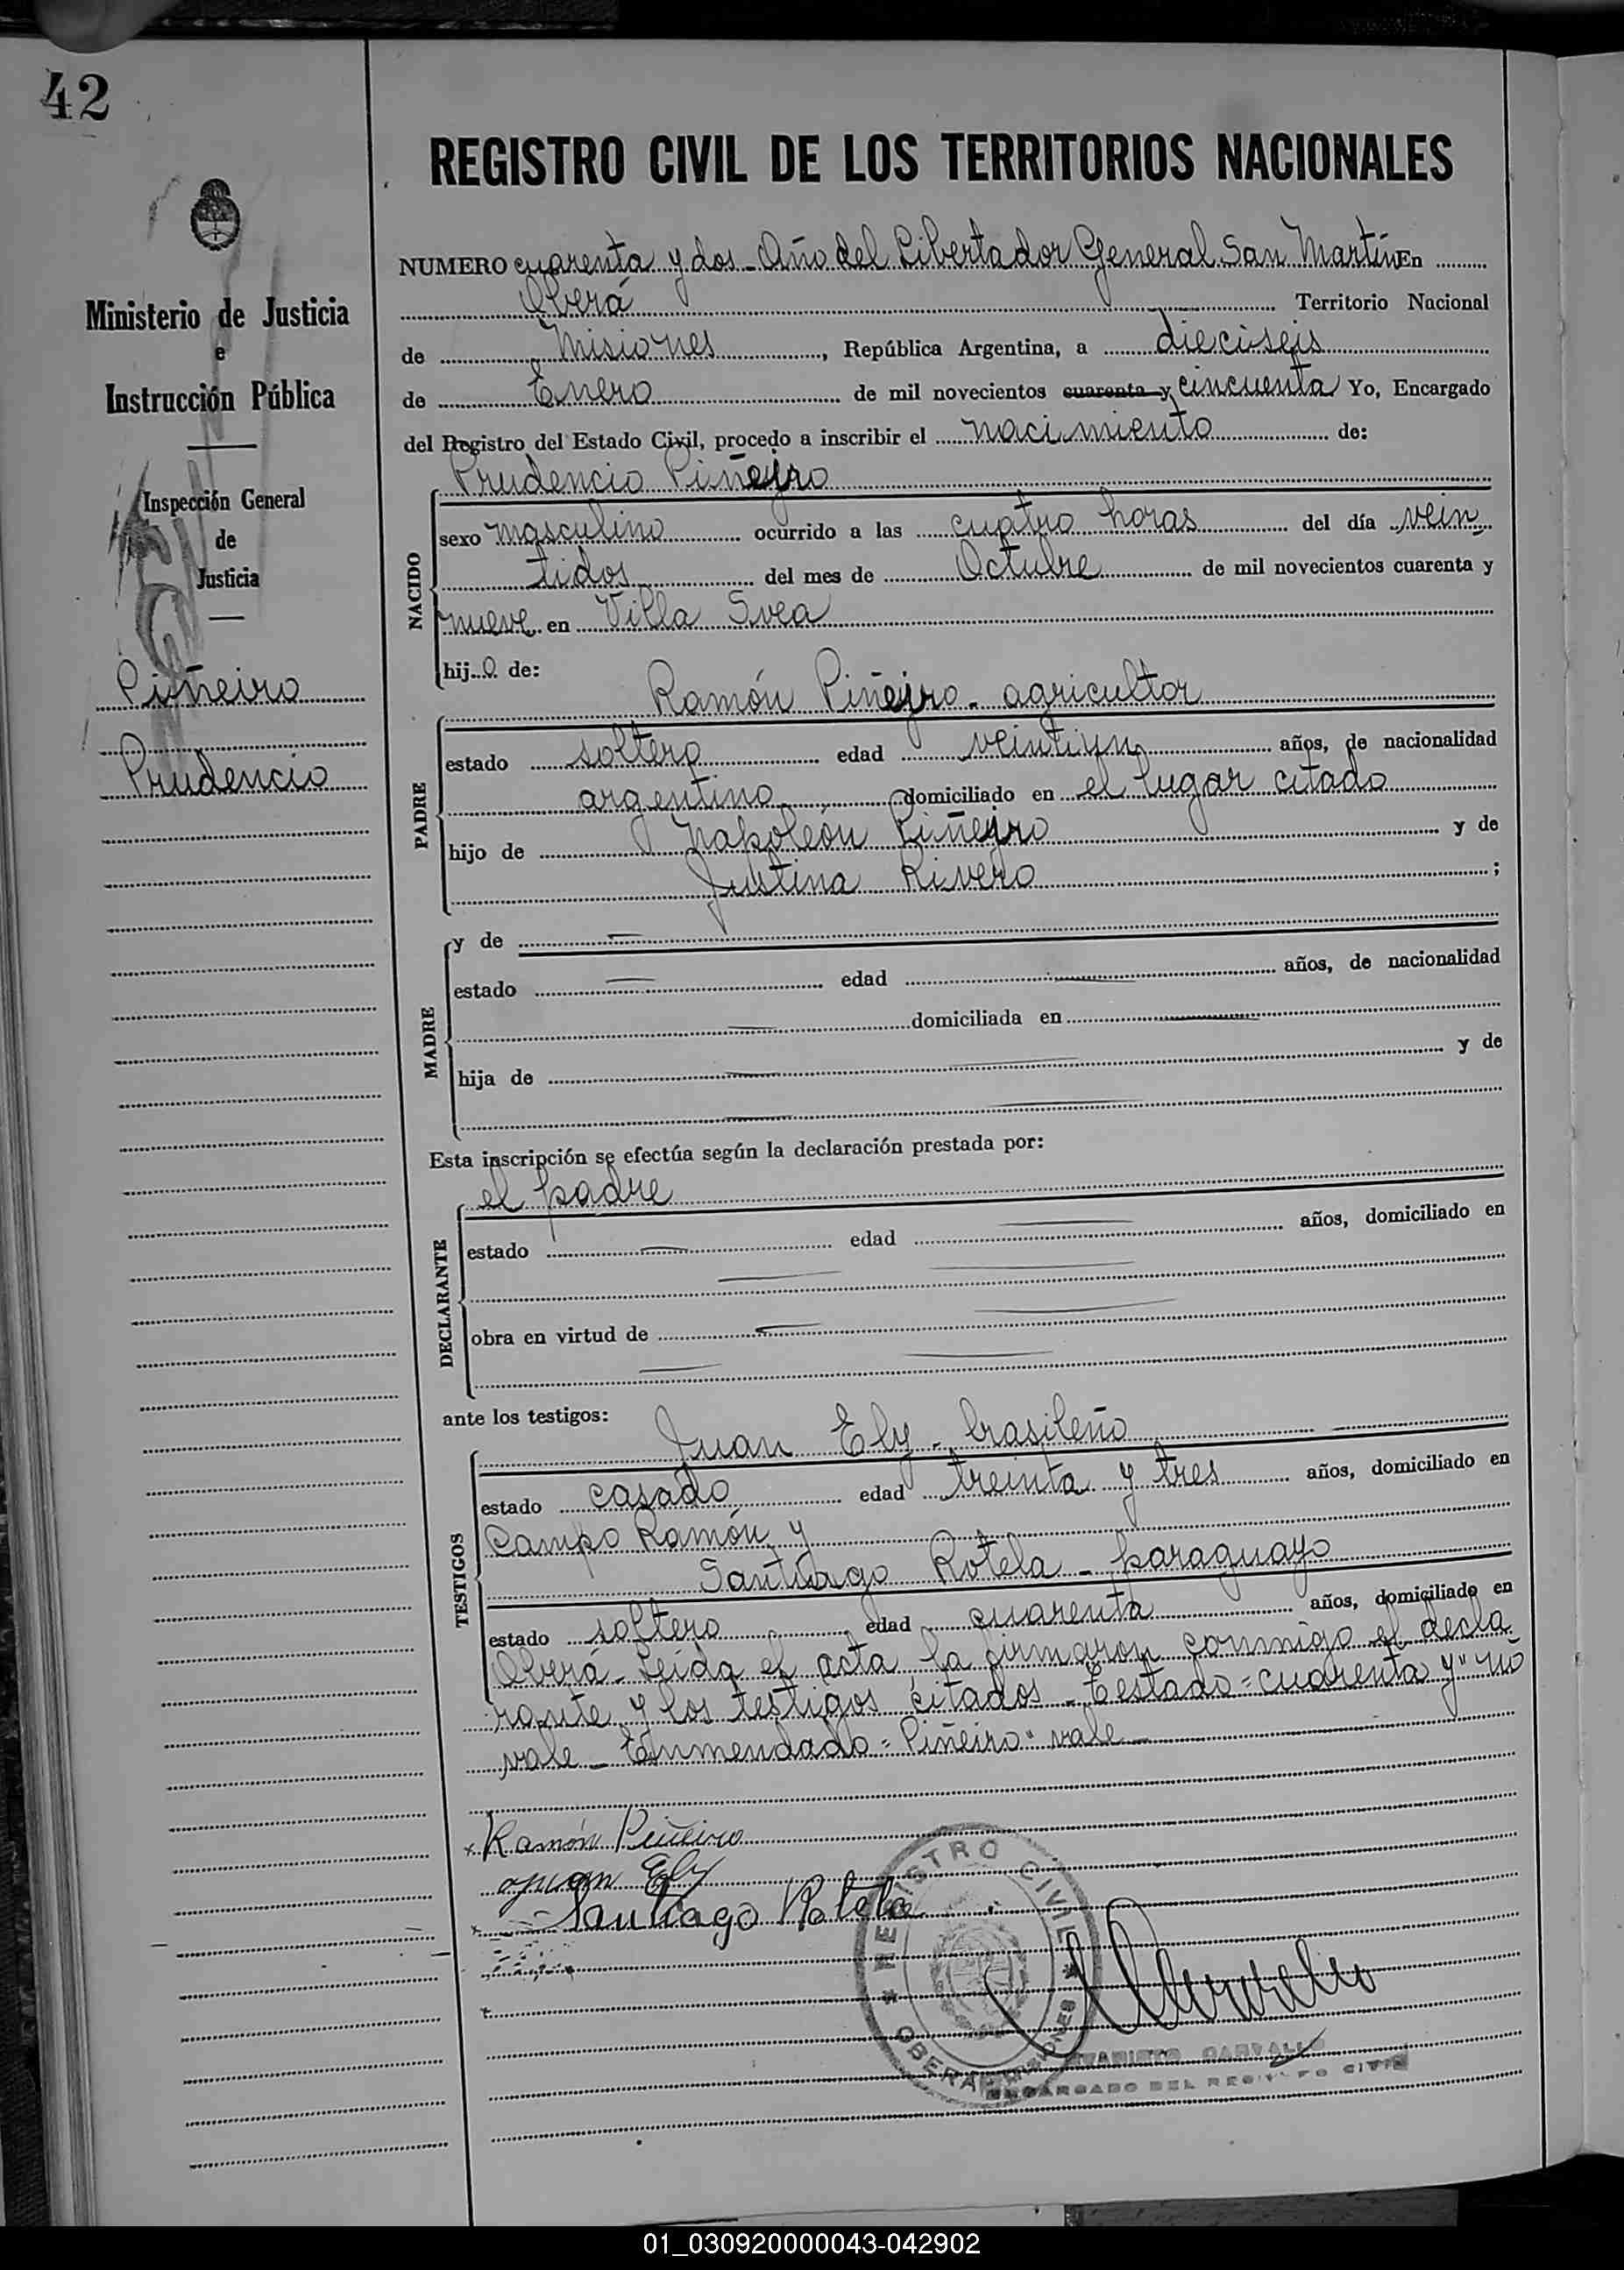 42
REGISTRO CIVIL DE LOS TERRITORIOS NACIONALES
Ministerio de Justicia
e
Instrucción Pública
Inspección General
de
Justicia
Piñeiro
Prudencio
NUMERO cuarenta y dos - Año del Libertador General San Martín En
Oberá Territorio Nacional
de Misiones, República Argentina, a dieciseis
de Enero de mil novecientos cuarenta y cincuenta Yo, Encargado
del Registro del Estado Civil, procedo a inscribir el nacimiento de:
Prudencio Piñeiro
NACIDO
sexo masculino ocurrido a las cuatro horas del día vein
tidos del mes de Octubre de mil novecientos cuarenta y
nueve en Villa Svea
hijo de:
Ramón Piñeiro - agricultor
PADRE
estado soltero edad veintiun años, de nacionalidad
argentino domiciliado en el lugar citado
hijo de Napoleón Piñeiro y de
Justina Rivero ;
MADRE
y de —
estado — edad — años, de nacionalidad
— domiciliada en —
hija de — y de
—
Esta inscripción se efectúa según la declaración prestada por:
el padre
DECLARANTE
estado — edad — años, domiciliado en
—
obra en virtud de —
—
ante los testigos:
Juan Ely - brasileño
TESTIGOS
estado casado edad treinta y tres años, domiciliado en
Campo Ramón y
Santiago Rotela - paraguayo
estado soltero edad cuarenta años, domiciliado en
Oberá - Leida el acta la firmaron conmigo el decla
rante y los testigos citados - Testado = cuarenta y" no
vale - Enmendado = Piñeiro" vale -
Ramón Piñeiro
Juan Ely
Santiago Rotela
REGISTRO CIVIL
OBERÁ MISIONES
CARVALLO
ENCARGADO DEL REGISTRO CIVIL
01_030920000043-042902